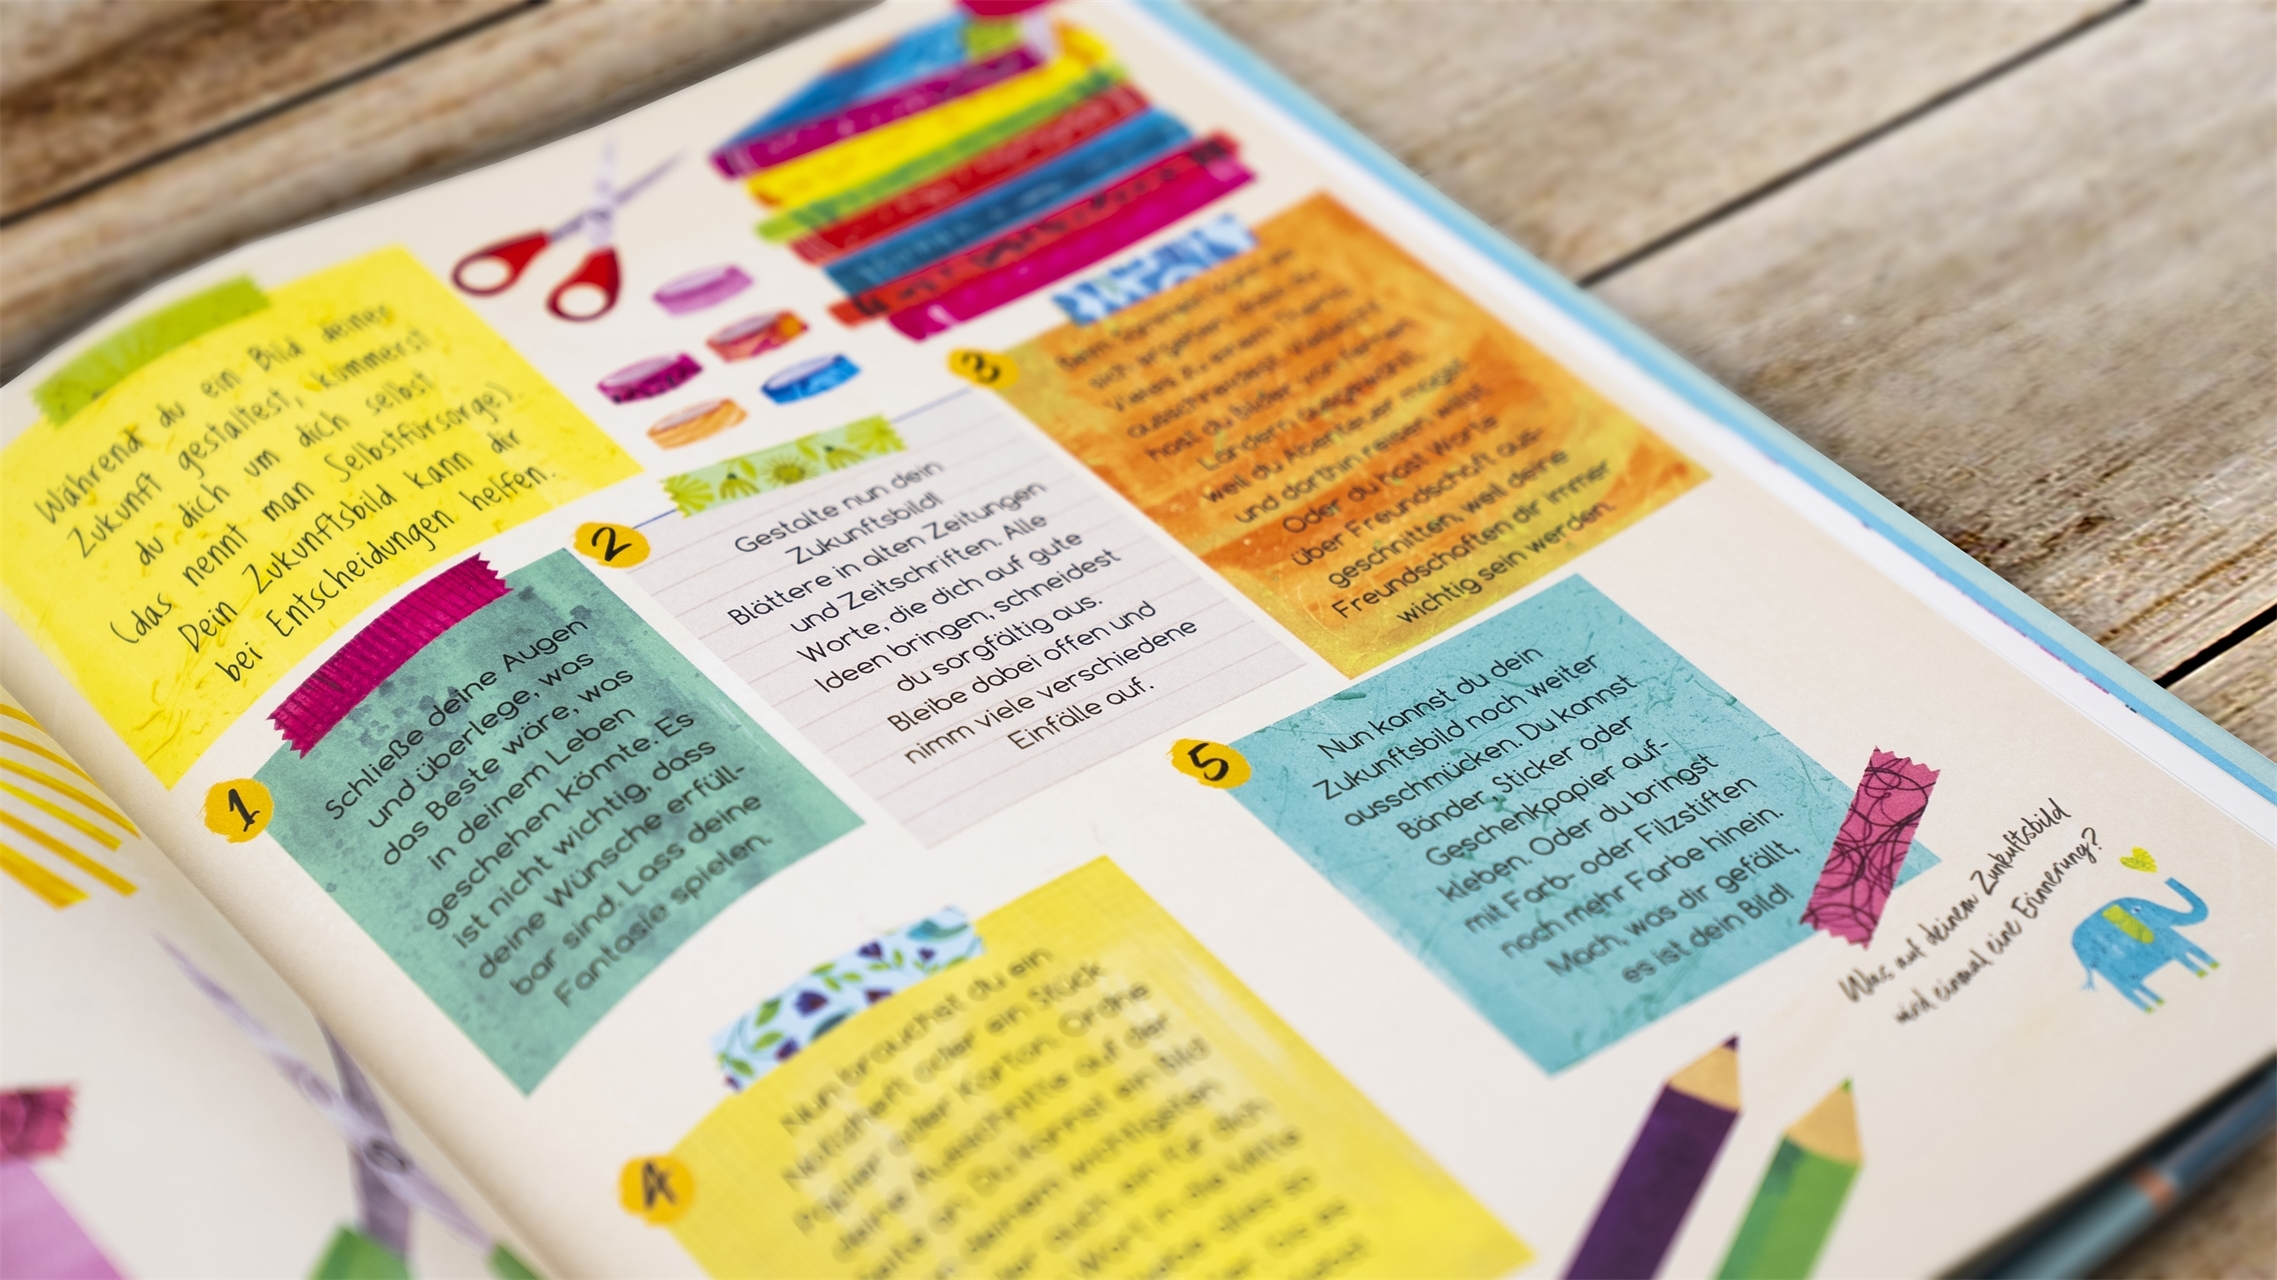 Während du ein Bild deiner
Zukunft gestaltest, kümmerst
du dich um dich selbst
(das nennt man Selbstfürsorge).
Dein Zukunftsbild kann dir
bei Entscheidungen helfen.
1
Schließe deine Augen
und überlege, was
das Beste wäre, was
in deinem Leben
geschehen könnte. Es
ist nicht wichtig, dass
deine Wünsche erfüll-
bar sind. Lass deine
Fantasie spielen.
2
Gestalte nun dein
Zukunftsbild!
Blättere in alten Zeitungen
und Zeitschriften. Alle
Worte, die dich auf gute
Ideen bringen, schneidest
du sorgfältig aus.
Bleibe dabei offen und
nimm viele verschiedene
Einfälle auf.
3
ausschneidest. Vielleicht
hast du Bilder von fernen
Ländern ausgewählt,
weil du Abenteuer magst
und dorthin reisen willst.
Oder du hast Worte
über Freundschaft aus-
geschnitten, weil deine
Freundschaften dir immer
wichtig sein werden.
4
Nun brauchst du ein
Notizheft oder ein Stück
Papier oder Karton. Ordne
deine Ausschnitte auf der
ein Bild
wichtigsten
für dich
in die Mitte
5
Nun kannst du dein
Zukunftsbild noch weiter
ausschmücken. Du kannst
Bänder, Sticker oder
Geschenkpapier auf-
kleben. Oder du bringst
mit Farb- oder Filzstiften
noch mehr Farbe hinein.
Mach, was dir gefällt,
es ist dein Bild!
Was auf deinem Zunkuftsbild
wird einmal eine Erinnerung?